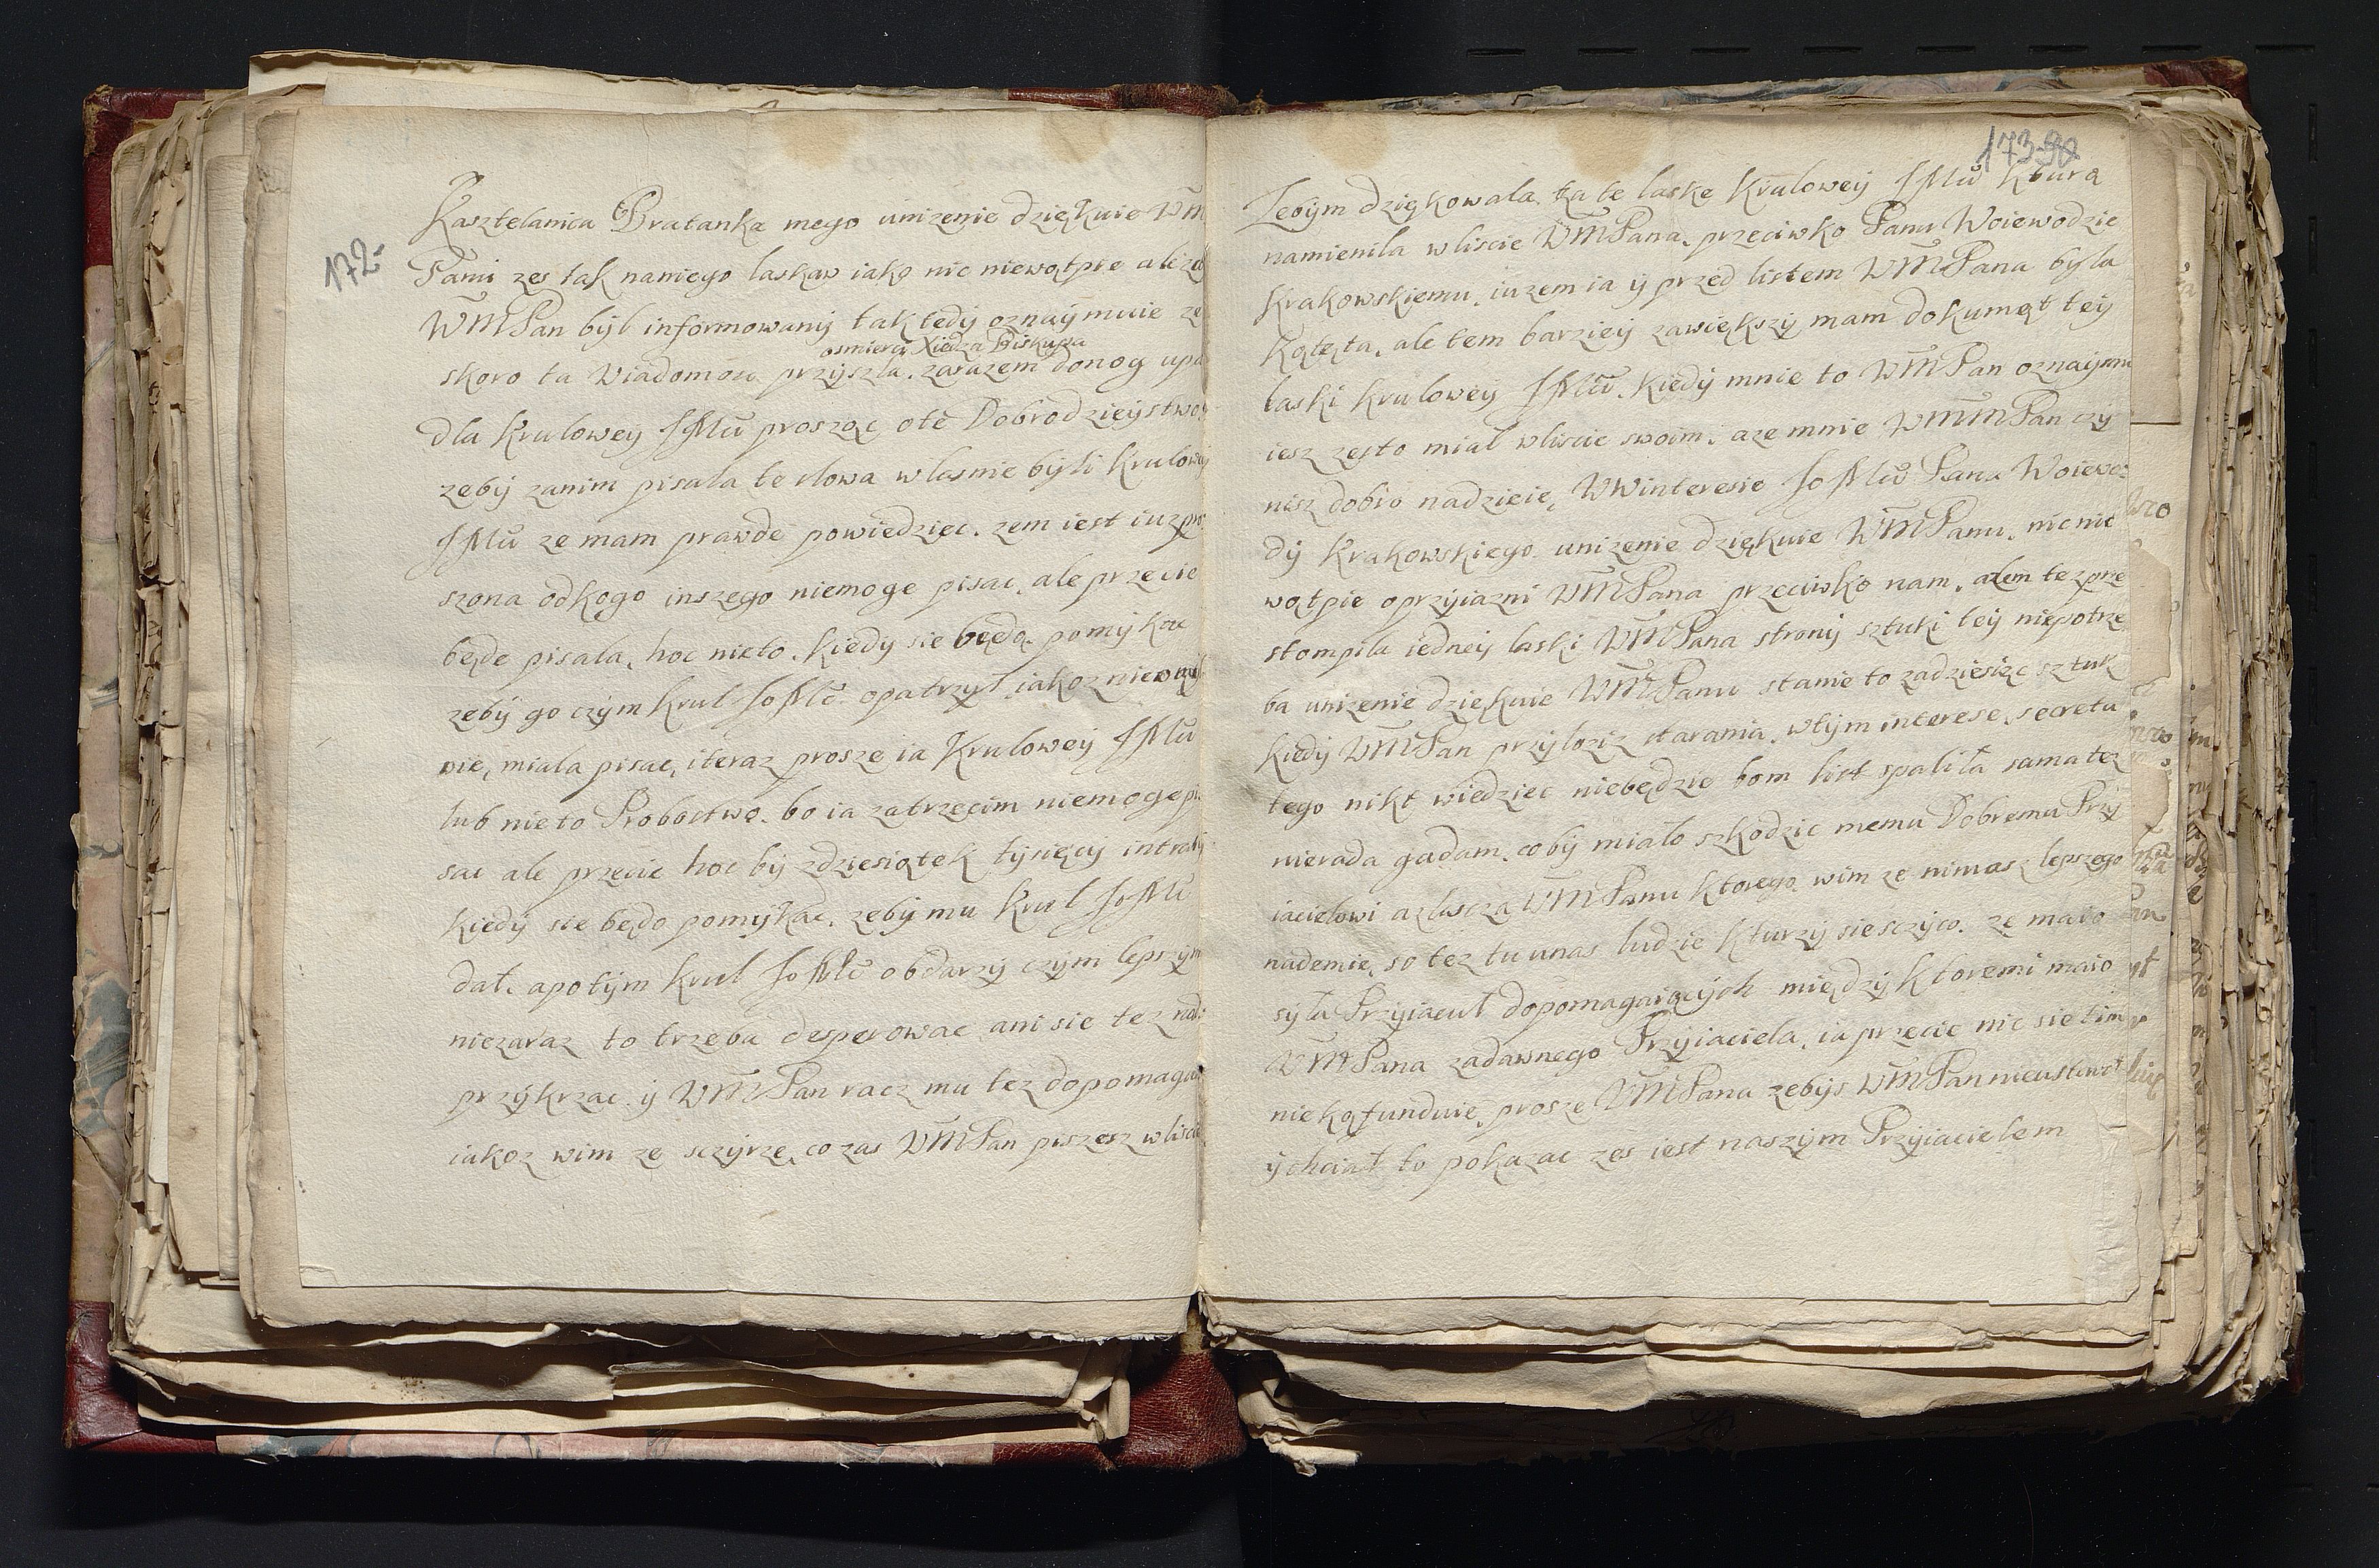 172.
Kasztelanica Bratanka mego unizenie dziękuie WM
Panu zes tak naniego laskaw iako nic niewątpie ale zeb
WMPan był informowany tak tedy oznaymuie ze
osmierci Xiędza Biskupa
skoro ta Wiadomosc przyszła. zarazem donog upa
dla Krulowey JMĊi proszoę ote Dobrodzieystwo
zeby zanim pisala te słowa wlasnie byli Krulowey
JMĊi ze mam prawde powiedziec. zem iest iuz pro
szona odkogo inszego niemoge pisac, ale przecie
będe pisala, hoc nieto. kiedy sie będą pomykac
zeby go czym Krul JoMĊ. opatrzył, iakoz
nie, miala pisac, iteraz prosze ia Krulowey JMĊi
lub nieto Probostwo. bo ia zatrzecim niemoge pi
sac ale przecie hoc by zdziesiątek tysięcy intraty
kiedy sie będo pomykac. zeby mu Krul JoMĊ
dał. apotym Krul JoMĊ obdarzy czym lepszym
niezaraz to trzeba desperowac ani sie tez
przykrzac y WMPan racz mu tez dopomaga
iakoz wim ze sczyrze, co zas WMPan piszesz wliscie
173
Zebym dziękowala za te laske Krulowey JMĊi Kturą
namienila wliscie WMPana. przeciwko Panu Woiewodzie
Krakowskiemu. iuzem ia y przed listem WMPana była
Kątęta, ale tem barziey zawiększy mam dokumąt tey
laski Krulowey JMĊi. Kiedy mnie to WMPan oznaymu
iesz zesto mial wliscie swoim. aze mnie WMMPan czy
nisz dobro nadzieie, WWinteresie JoMĊi Pana Woiewo:
dy Krakowskiego unizenie dziękuie WMPanu, nic nie
wątpie oprzyiazni WMPana przeciwko nam. alem tez prze
stompila iedney laski WMPana strony sztuki tey niepotrze
ba unizenie dziękuie WMPanu stanie to zadziesięc sztuk
kiedy WMPan przylozisz starania. wtym interese, secretu
tego nikt wiedziec niebędzie bom list spaliła sama tez
nierada gadam. coby miało szkodzic memu Dobremu Przy
iacielowi azwscza WMPanu ktorego wim ze nimasz lepszego
nademie, so tez tu unas ludzie kturzy siesczyco. ze maio
syła Przyiacuł dopomagaiących między ktoremi maio
WMPana zadawnego Przyiaciela, ia przecie nic sie tim
nie kąfunduię, prosze WMPana zebys WMPan nieustawał
ychciał to pokazac zes iest naszym Przyiacielem